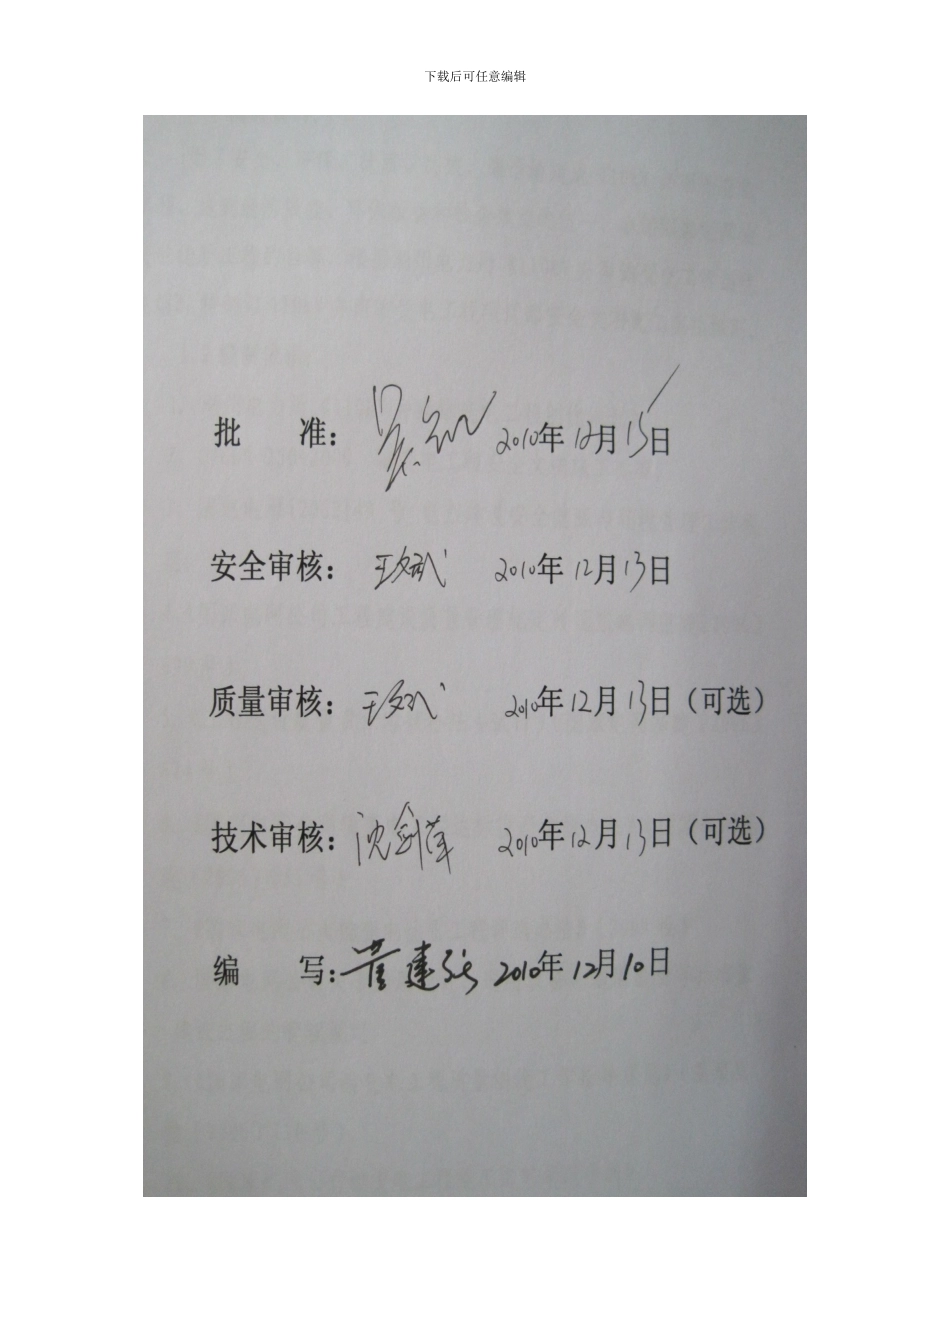 下载后可任意编辑
批 准： 2010年12月15日
安全审核：王斌 2010年12月13日
质量审核：王斌 2010年12月13日（可选）
技术审核：沈剑萍 2010年12月13日（可选）
编 写：黄建 2010年12月10日